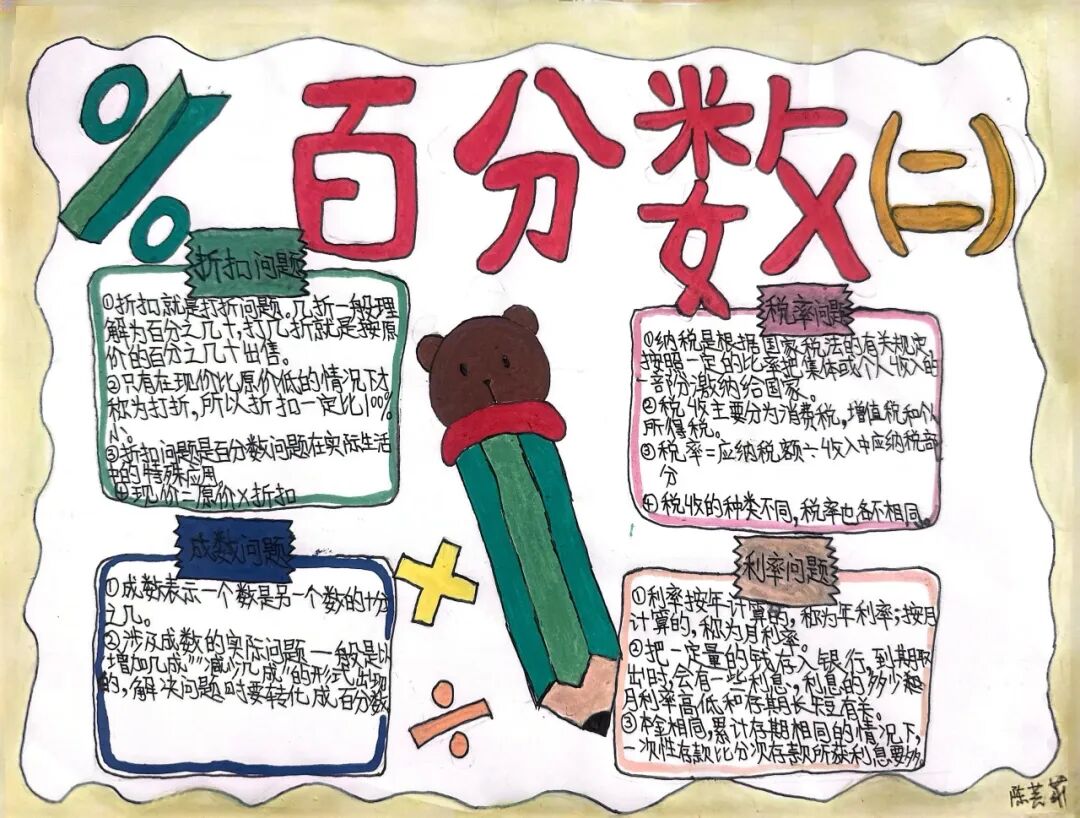 %
百分数(二)
折扣问题
①折扣就是打折问题。几折一般理
解为百分之几十,打几折就是按原
价的百分之几十出售。
②只有在现价比原价低的情况下才
称为打折,所以折扣一定比100%
小。
③折扣问题是百分数问题在实际生活
中的特殊应用。
④现价=原价×折扣
税率问题
①纳税是根据国家税法的有关规定,
按照一定的比率把集体或个人收入的
一部分缴纳给国家。
②税收主要分为消费税,增值税和个人
所得税。
③税率=应纳税额÷收入中应纳税部
分
④税收的种类不同,税率也各不相同。
成数问题
①成数表示一个数是另一个数的十分
之几。
②涉及成数的实际问题一般是以
"增加几成""减少几成"的形式出现
的,解决问题时要转化成百分数
利率问题
①利率按年计算的,称为年利率;按月
计算的,称为月利率。
②把一定量的钱存入银行,到期取
出时,会有一些利息,利息的多少和
月利率高低和存期长短有关。
③本金相同,累计存期相同的情况下,
一次性存款比分次存款所获利息要多。
陈芸